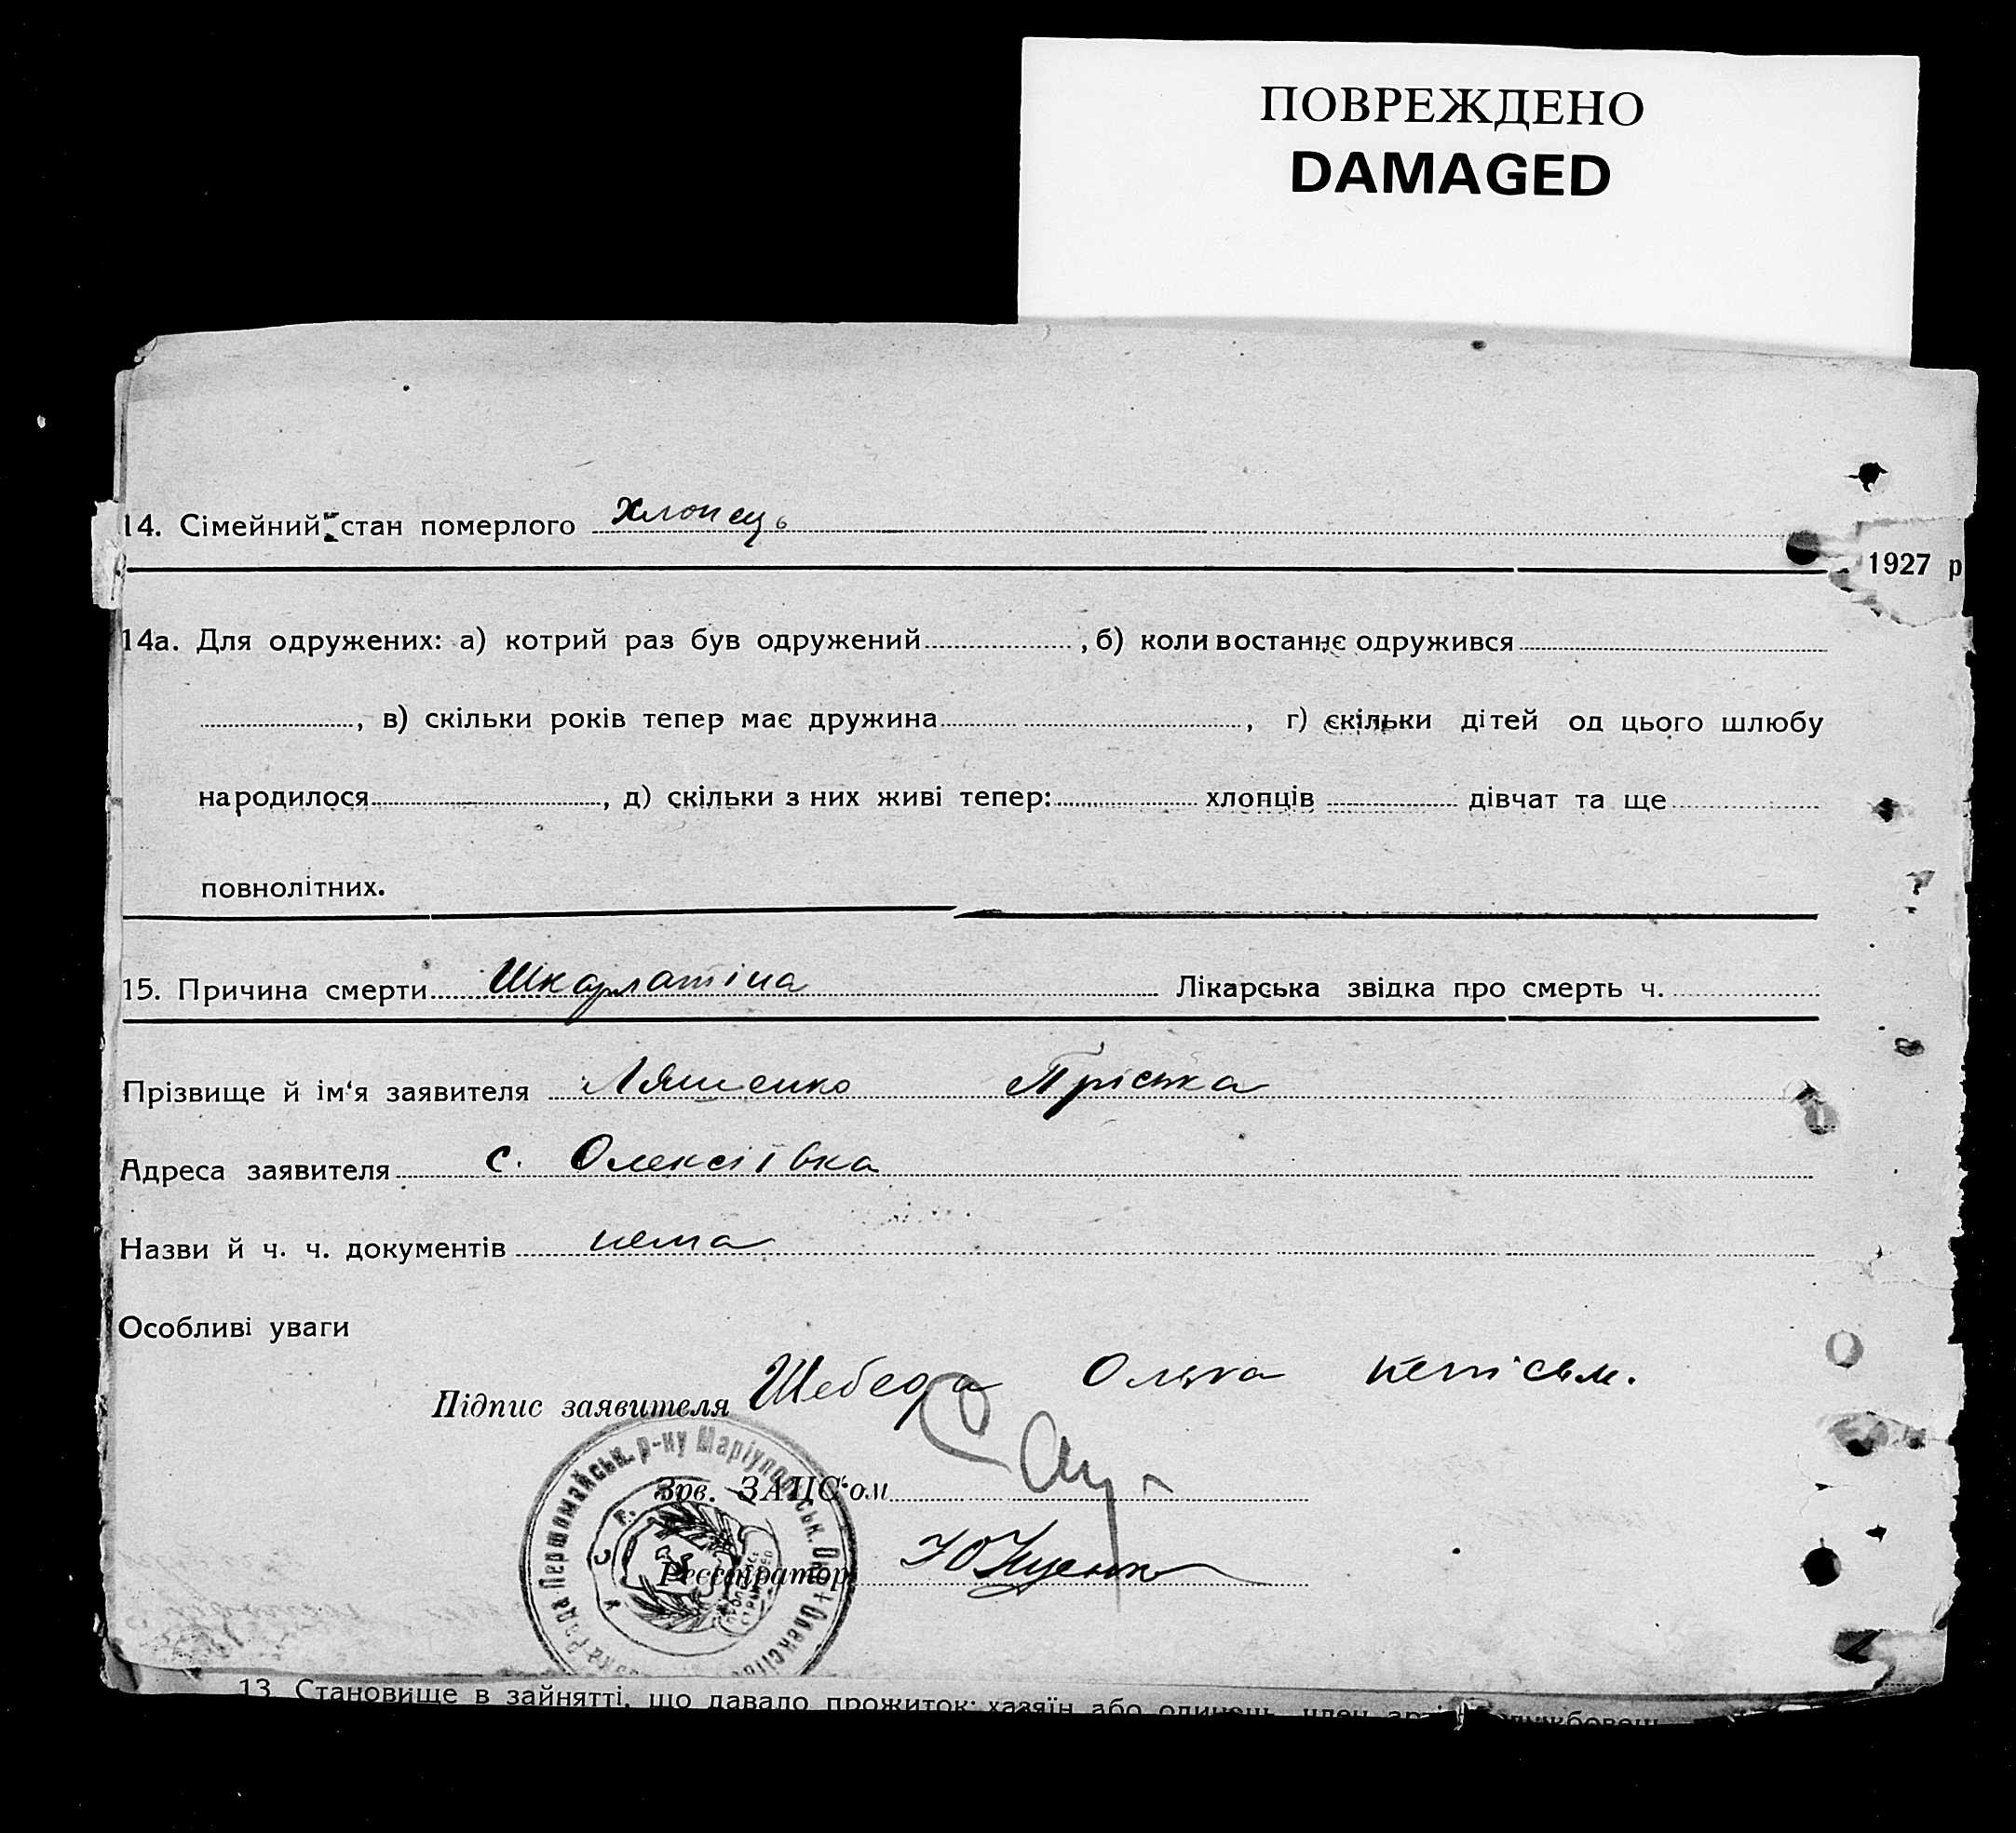 ПОВРЕЖДЕНО
DAMAGED
14. Сімейний стан померлого Хлопець
1927 р
14а. Для одружених: а) котрий раз був одружений , б) коли востаннє одружився
, в) скільки років тепер має дружина , г) скільки дітей од цього шлюбу
народилося , д) скільки з них живі тепер: хлопців дівчат та ще
повнолітних.
15. Причина смерти Шкарлатіна Лікарська звідка про смерть ч.
Прізвище й ім'я заявителя Ляшенко Пріська
Адреса заявителя с. Олексіївка
Назви й ч. ч. документів нема
Особливі уваги
Підпис заявителя Шебеда Олька непісьм.
Зав. ЗАЦС'ом
Реєстратор
Рада Першомайськ. р-ну Маріупольськ. Окр.
13. Становище в зайнятті, що давало прожиток: хазяїн або одинець, член